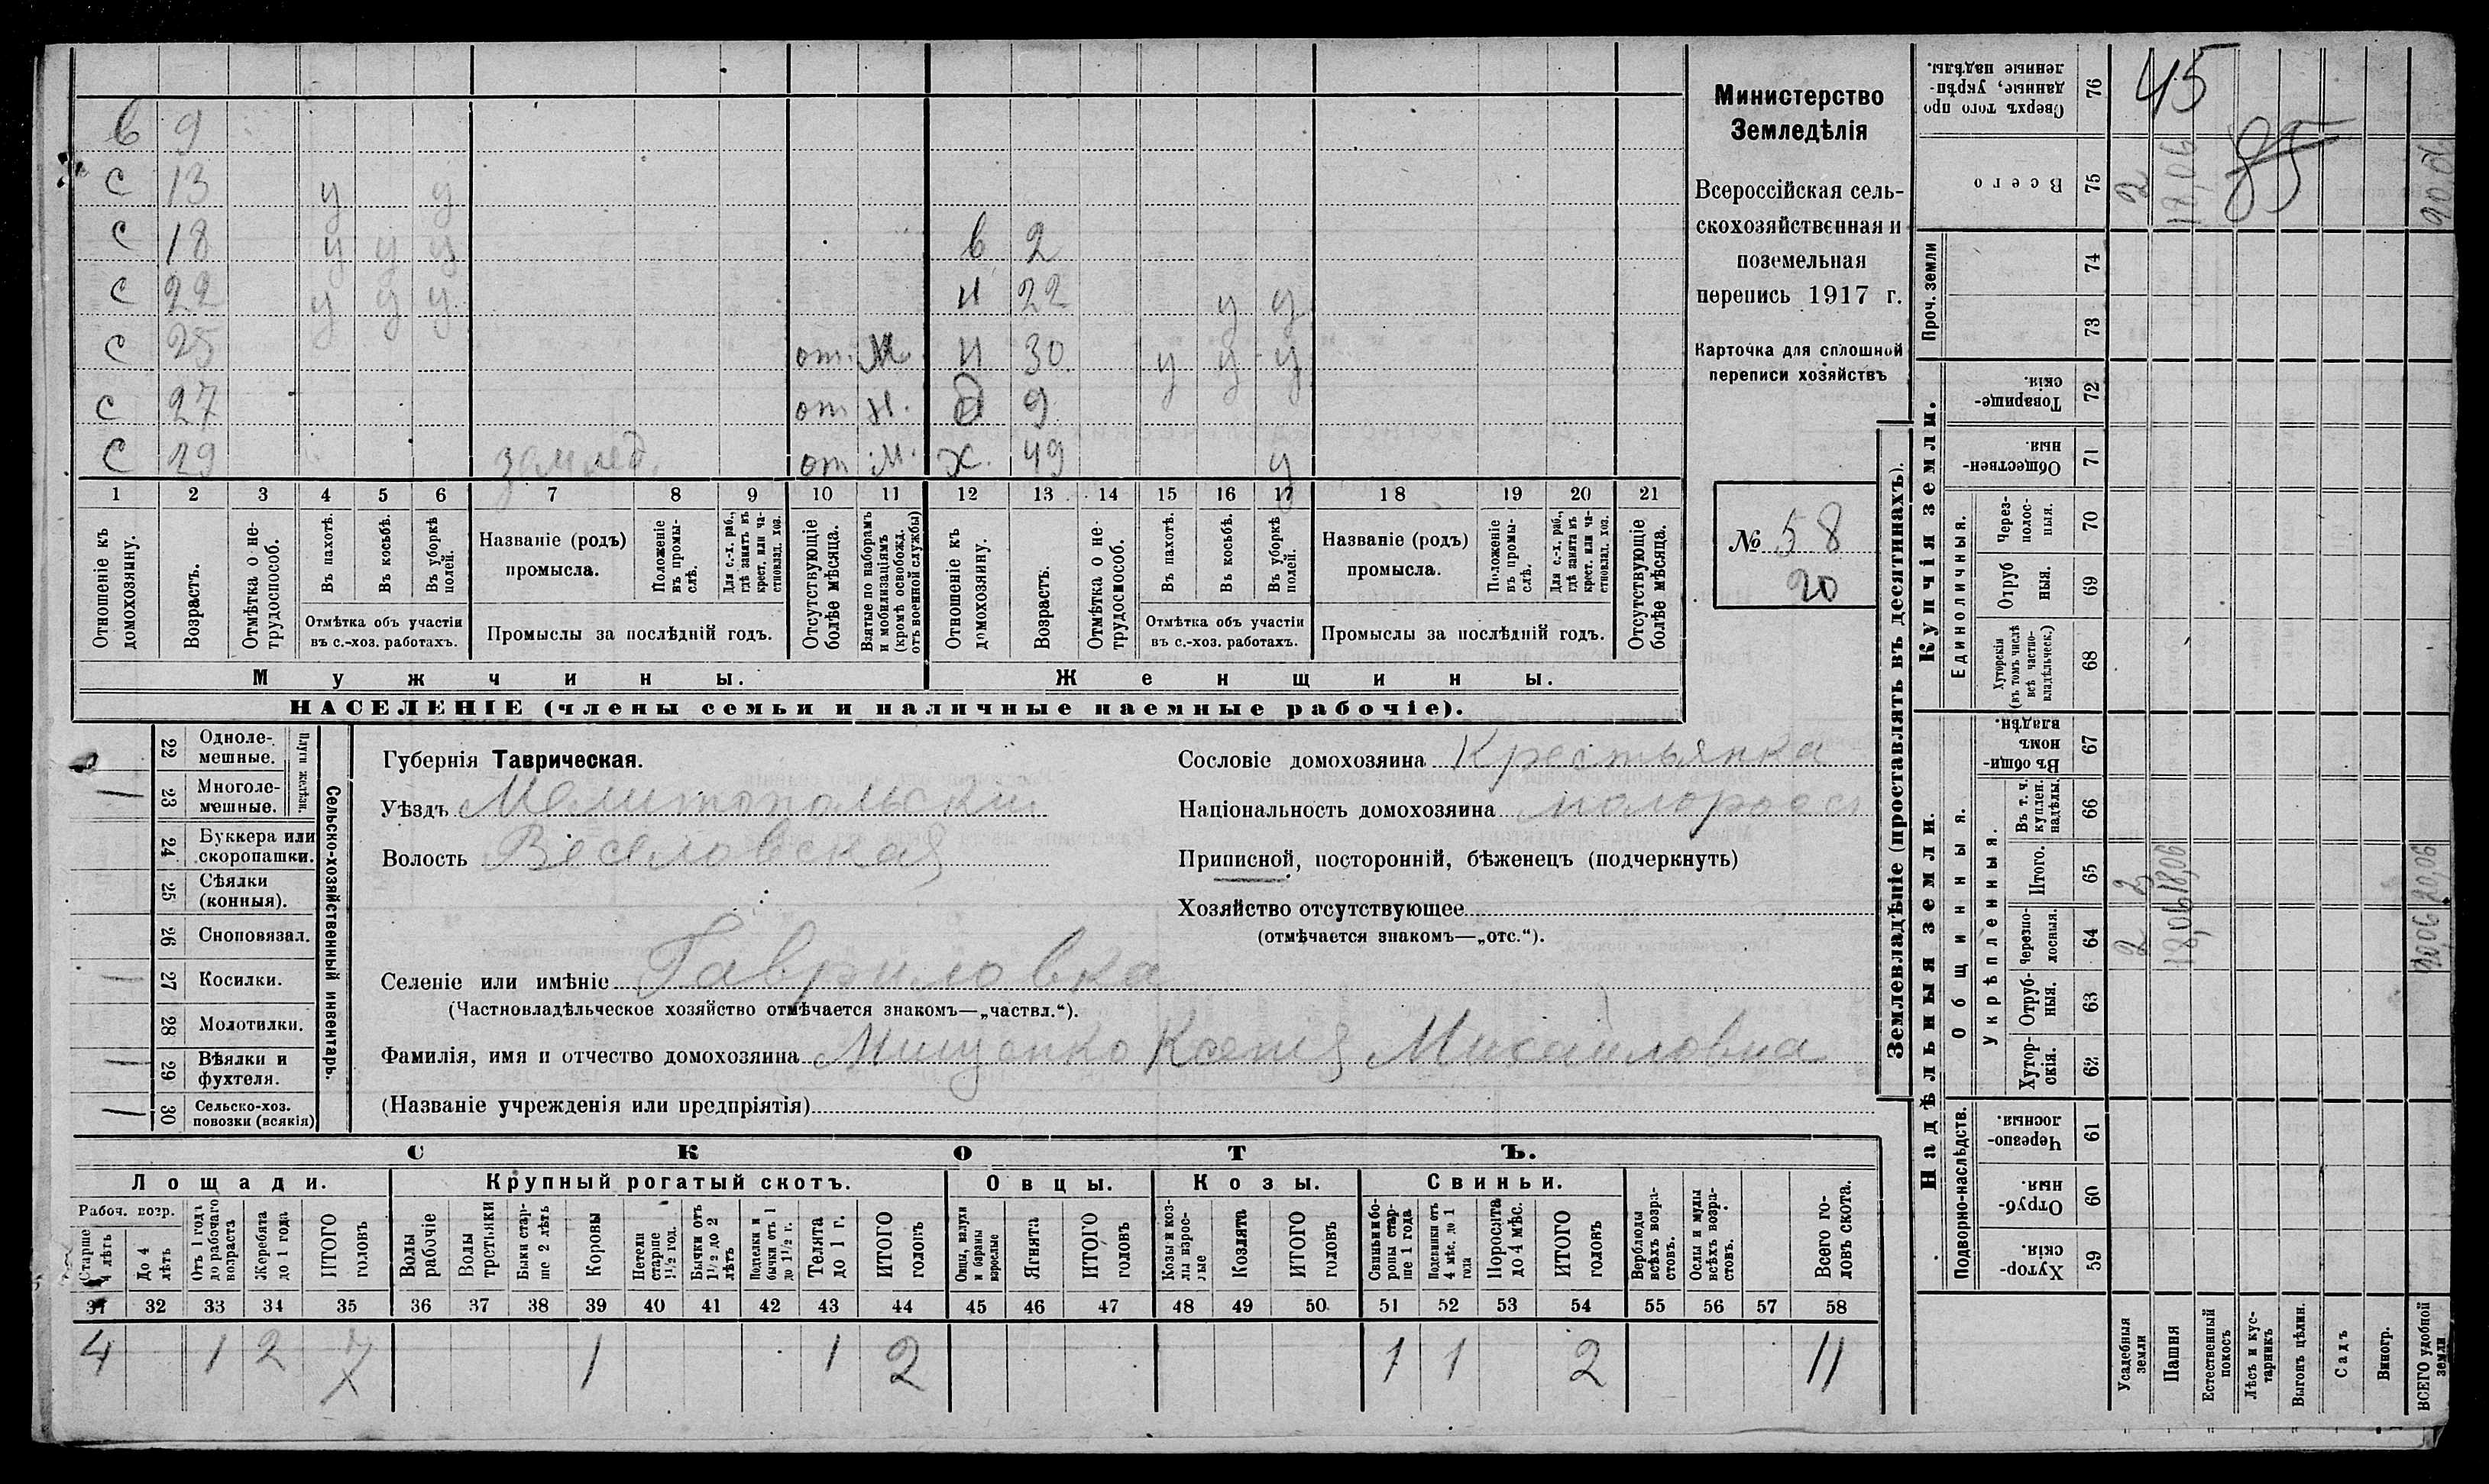 Министерство
Земледѣлія
Всероссійская сель-
скохозяйственная и
поземельная
перепись 1917 г.
Карточка для сплошной
переписи хозяйствъ
№ 58
20
в 9
с 13 у у
с 18 у у у в 2
с 22 у у у н 22 у у
с 25 от. М. н 30 у у у
с 27 от н. д 9
с 29 от м. ж. 49 у
1 2 3 4 5 6 7 8 9 10 11 12 13 14 15 16 17 18 19 20 21
Отношеніе къ домохозяину.
Возрастъ.
Отмѣтка о не-трудоспособ.
Въ пахотѣ.
Въ косьбѣ.
Въ уборкѣ полей.
Отмѣтка объ участіи
въ с.-хоз. работахъ.
Названіе (родъ)
промысла.
Положеніе въ промы-слѣ.
Для с.-х. раб., гдѣ занятъ въ крест. или ча-стновлад. хоз.
Промыслы за послѣдній годъ.
Отсутствующіе болѣе мѣсяца.
Взятые по наборамъ и мобилизаціямъ (кромѣ освобожд. отъ военной службы)
Отношеніе къ домохозяину.
Возрастъ.
Отмѣтка о не-трудоспособ.
Въ пахотѣ.
Въ косьбѣ.
Въ уборкѣ полей.
Отмѣтка объ участіи
въ с.-хоз. работахъ.
Названіе (родъ)
промысла.
Положеніе въ промы-слѣ.
Для с.-х. раб., гдѣ занята въ крест. или ча-стновлад. хоз.
Промыслы за послѣдній годъ.
Отсутствующіе болѣе мѣсяца.
Мужчины. Женщины.
НАСЕЛЕНІЕ (члены семьи и наличные наемные рабочіе).
Сельско-хозяйственный инвентарь.
Плуги желѣзн.
22 Однолемешные.
23 Многолемешные.
24 Буккера или скоропашки.
25 Сѣялки (конныя).
26 Сноповязал.
27 Косилки.
28 Молотилки.
29 Вѣялки и фухтеля.
30 Сельско-хоз. повозки (всякія)
Губернія Таврическая.
Уѣздъ Мелитопольскій
Волость Веселовская
Селеніе или имѣніе Гавриловка
(Частновладѣльческое хозяйство отмѣчается знакомъ—„частвл.“).
Фамилія, имя и отчество домохозяина Мищенко Ксенія Михайловна
(Названіе учрежденія или предпріятія)
Сословіе домохозяина Крестьянка
Національность домохозяина малоросс
Приписной, посторонній, бѣженецъ (подчеркнуть)
Хозяйство отсутствующее
(отмѣчается знакомъ—„отс.“).
СКОТЪ.
Лошади. Крупный рогатый скотъ. Овцы. Козы. Свиньи.
Рабоч. возр.
Старше 4 лѣтъ
До 4 лѣтъ
Отъ 1 года до рабочаго возраста
Жеребята до 1 года
ИТОГО головъ
Волы рабочіе
Волы третьяки
Быки старше 2 лѣтъ
Коровы
Нетели старше 1½ год.
Бычки отъ 1½ до 2 лѣтъ
Подтелки и бычки отъ 1 до 1½ г.
Телята до 1 г.
ИТОГО головъ
Овцы, валухи и бараны взрослые
Ягнята
ИТОГО головъ
Козы и козлы взрослые
Козлята
ИТОГО головъ
Свиньи и боровы старше 1 года
Подсвинки отъ 4 мѣс. до 1 года
Поросята до 4 мѣс.
ИТОГО головъ
Верблюды всѣхъ возрастовъ.
Ослы и мулы всѣхъ возрастовъ.
Всего головъ скота.
31 32 33 34 35 36 37 38 39 40 41 42 43 44 45 46 47 48 49 50 51 52 53 54 55 56 57 58
4 1 2 7 1 1 2 1 1 2 11
Землевладѣніе (проставлять въ десятинахъ).
Надѣльныя земли. Купчія земли. Проч. земли
Подворно-наслѣдств.
Общинныя.
Укрѣпленныя.
Единоличныя.
59 Хуторскія.
60 Отрубныя.
61 Черезполосныя.
62 Хуторскія.
63 Отрубныя.
64 Черезполосныя. 2 18,06 20,06
65 Итого. 2 18,06 20,06
66 Въ т. ч. куплен. надѣлы.
67 Въ общинномъ владѣн.
68 Хуторскія (въ томъ числѣ всѣ частновладѣльческ.)
69 Отрубныя.
70 Черезполосныя.
71 Обществен-ныя.
72 Товарищескія.
73
74
75 Всего 2
76 Сверхъ того проданные, укрѣпленные надѣлы.
45
85
Усадебныя земли
Пашня
Естественный покосъ
Лѣсъ и кустарникъ
Выгонъ цѣлин.
Садъ
Виногр.
ВСЕГО удобной земли